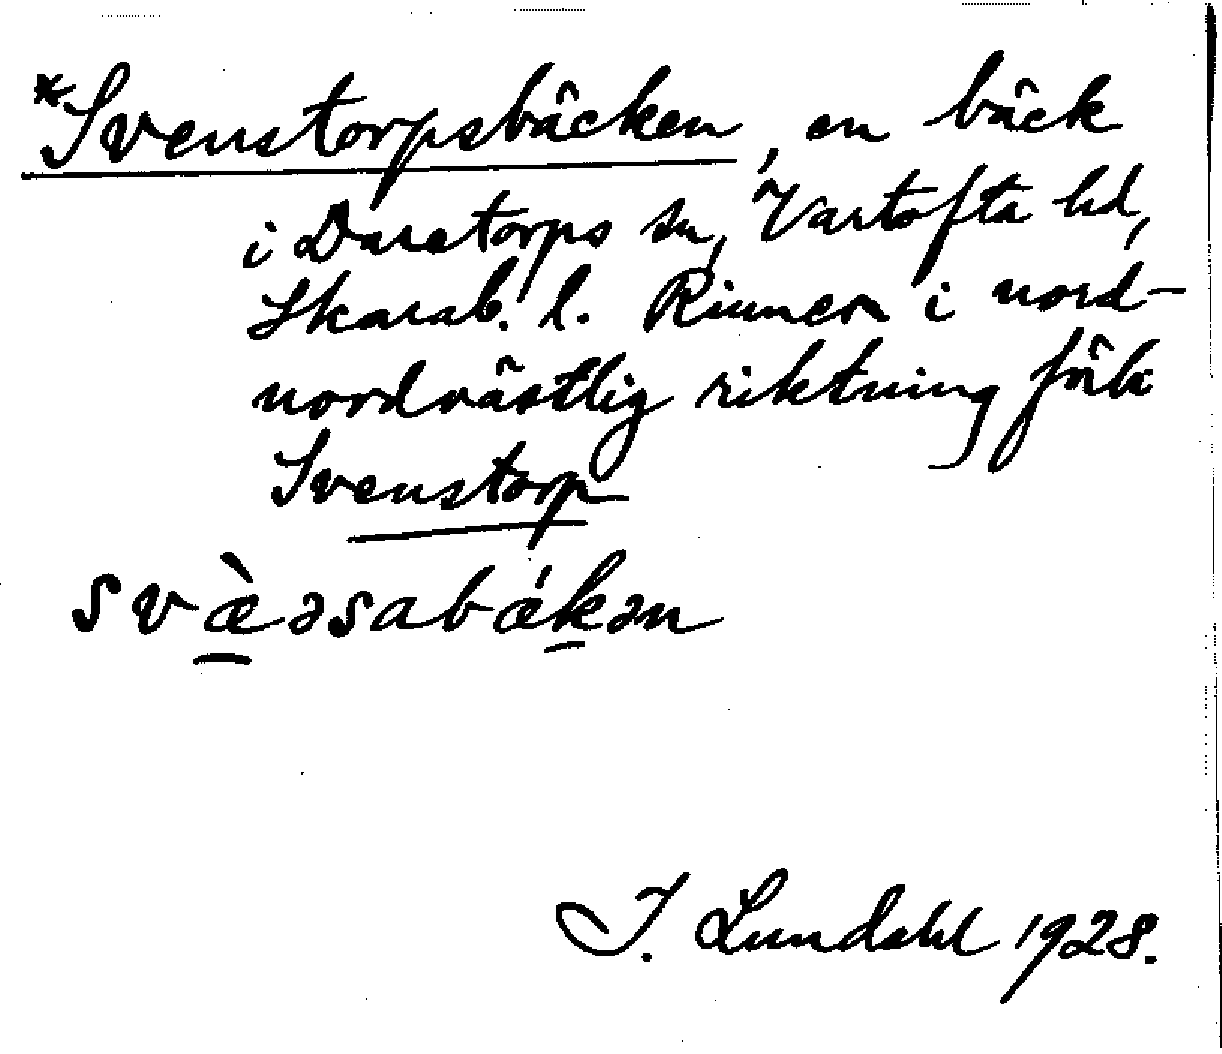 *Svenstorpsbäcken, en bäck
i Daretorps sn, Vartofta hd,
Skarab. l. Rinner i nord-
nordvästlig riktning förbi
Svenstorp
svæ̀əsabǽkən
I. Lundahl 1928.